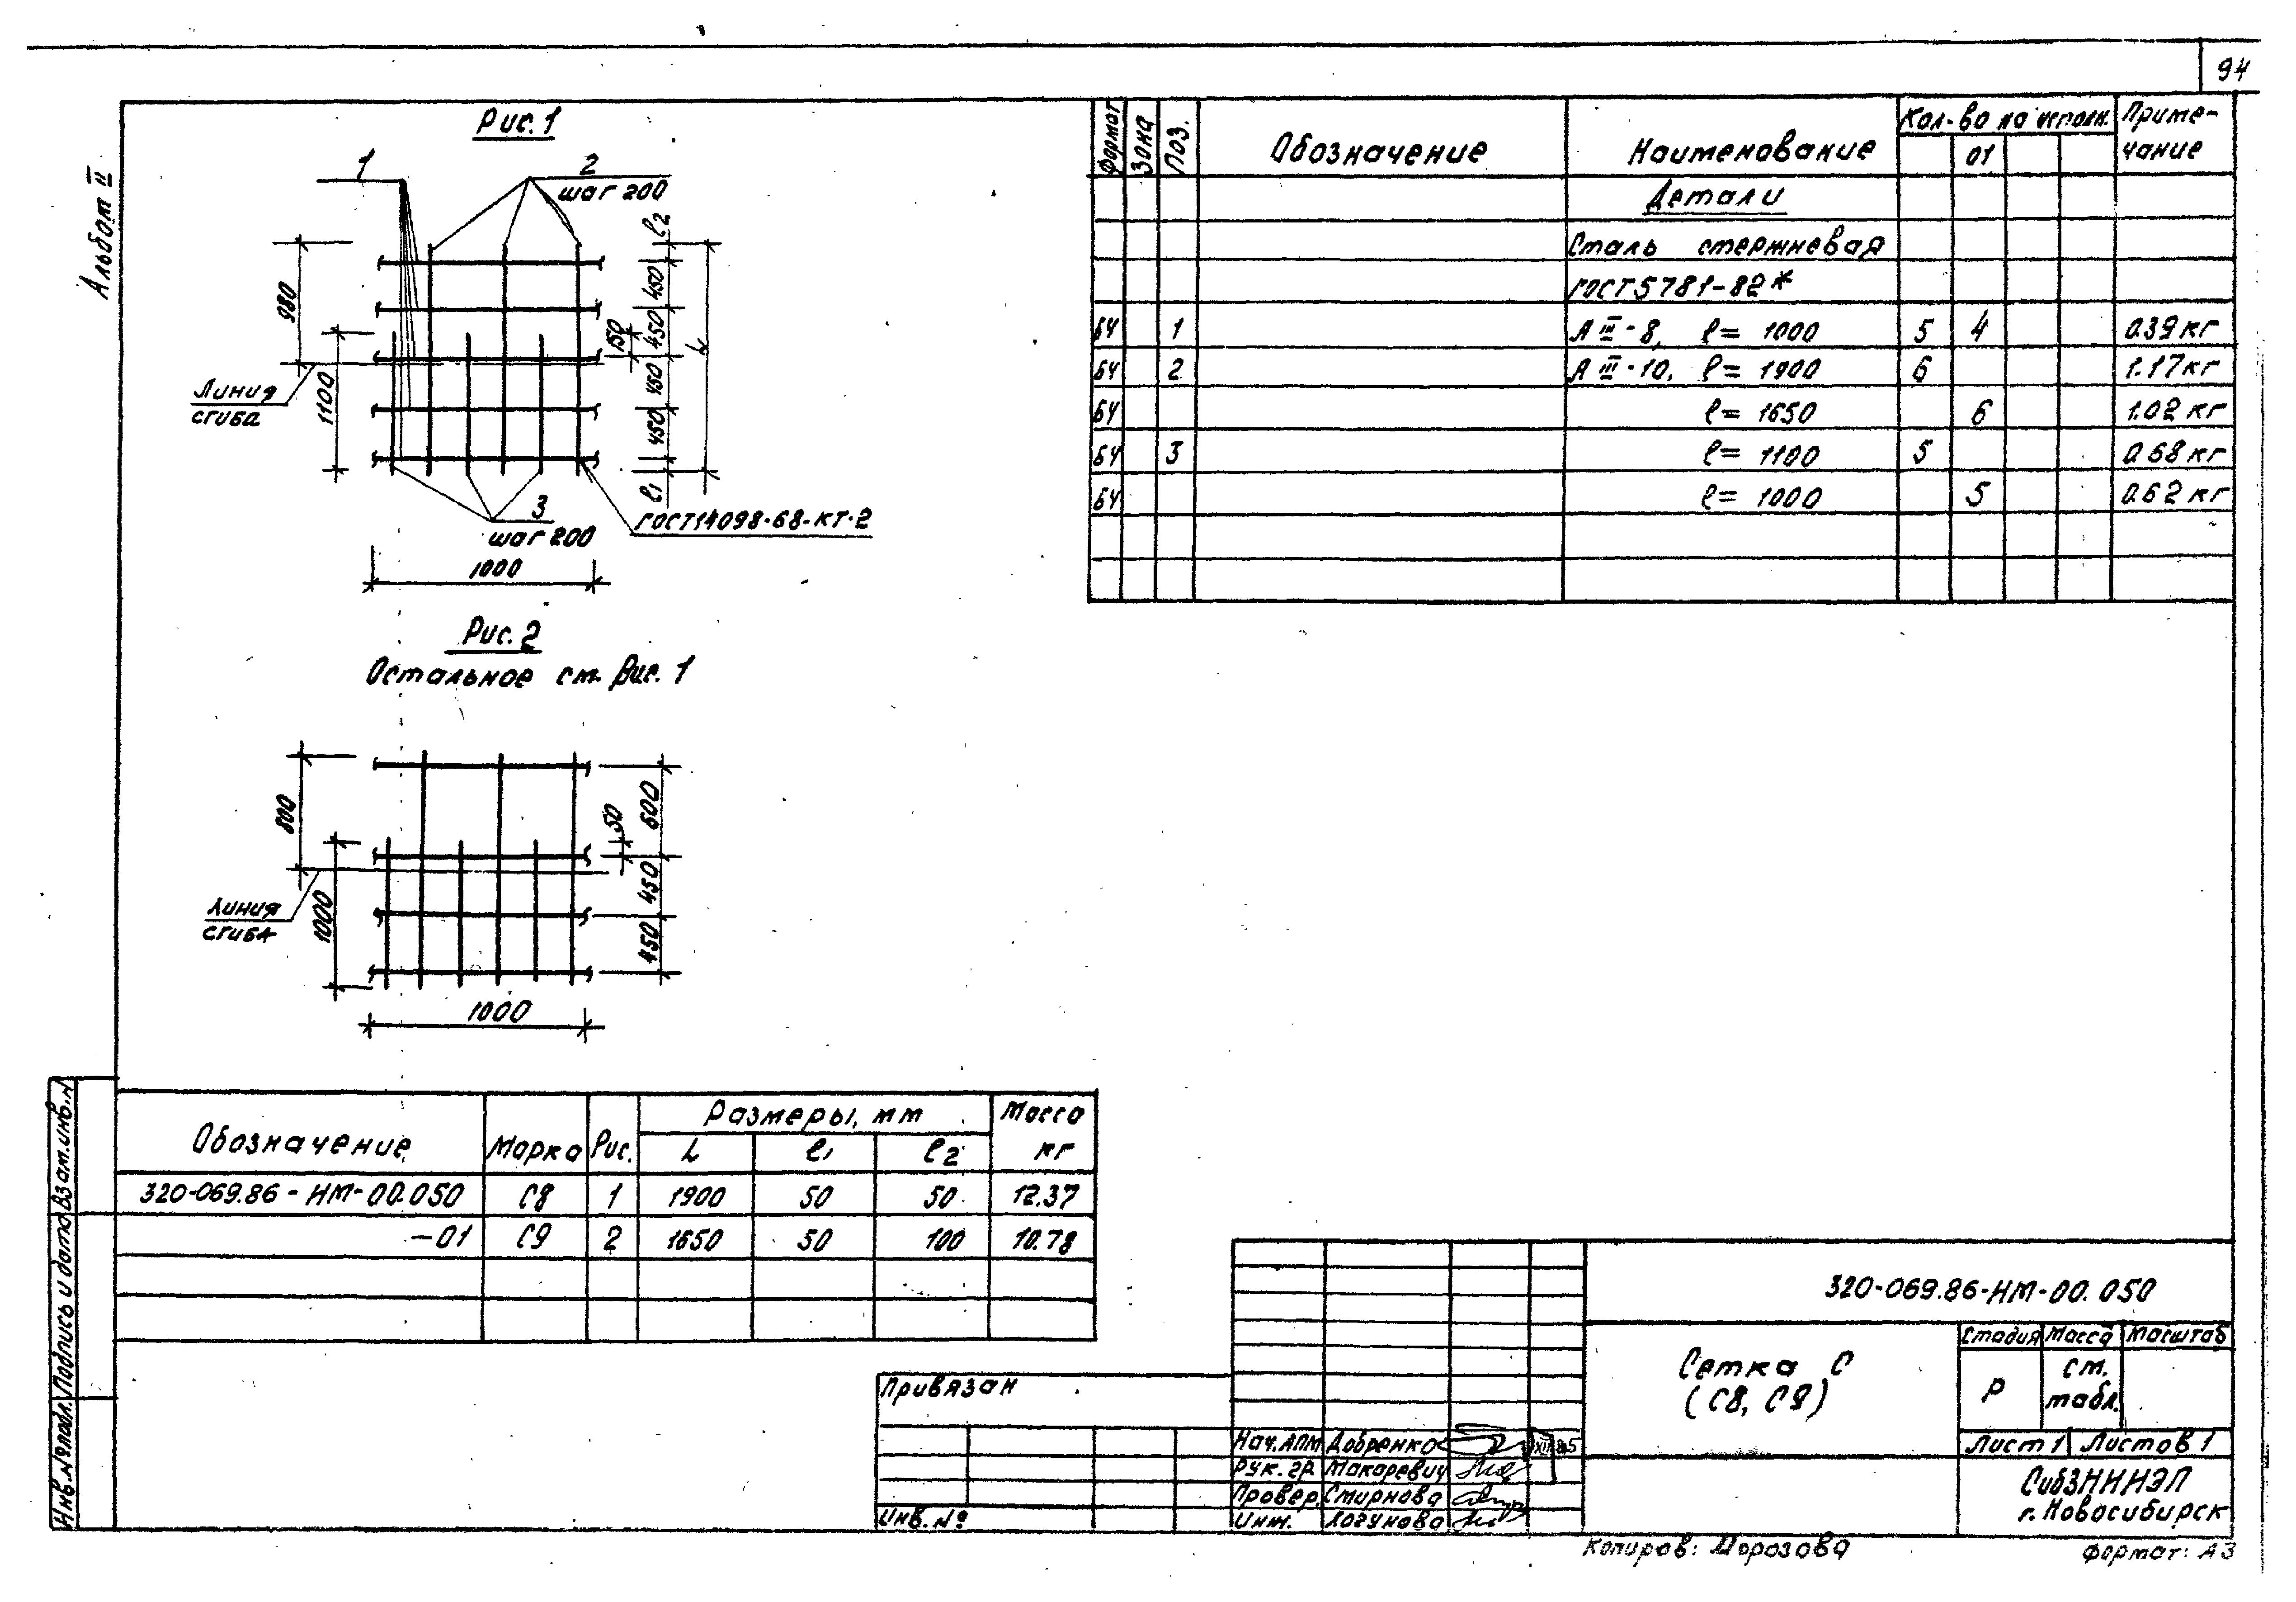 94
Альбом II
Рис. 1
1
2
шаг 200
980
1100
Линия
сгиба
l2
450
450
150
450
450
l1
L
3
шаг 200
ГОСТ14098-68-КТ-2
1000
Рис. 2
Остальное см. Рис. 1
800
1000
Линия
сгиба
50
600
450
450
1000
Формат Зона Поз. Обозначение Наименование Кол-во на исполн. Приме-
чание
01
Детали
Сталь стержневая
ГОСТ 5781-82*
БЧ 1 А III-8, l= 1000 5 4 0.39 кг
БЧ 2 А III-10, l= 1900 6 1.17 кг
БЧ l= 1650 6 1.02 кг
БЧ 3 l= 1100 5 0.68 кг
БЧ l= 1000 5 0.62 кг
Обозначение Марка Рис. Размеры, мм Масса
кг
L l1 l2
320-069.86-НМ-00.050 С8 1 1900 50 50 12.37
-01 С9 2 1650 50 100 10.78
Взам.инв.N
Подпись и дата
Инв.№подл.
Привязан
Инв. №
Нач.АПМ Добренко XII 85
Рук. гр. Макаревич
Провер. Смирнова
Инж.
320-069.86-НМ-00.050
Сетка С
(С8, С9)
Стадия Масса Масштаб
Р см.
табл.
Лист 1 Листов 1
СибЗНИИЭП
г. Новосибирск
Копиров: Морозова
Формат: А3